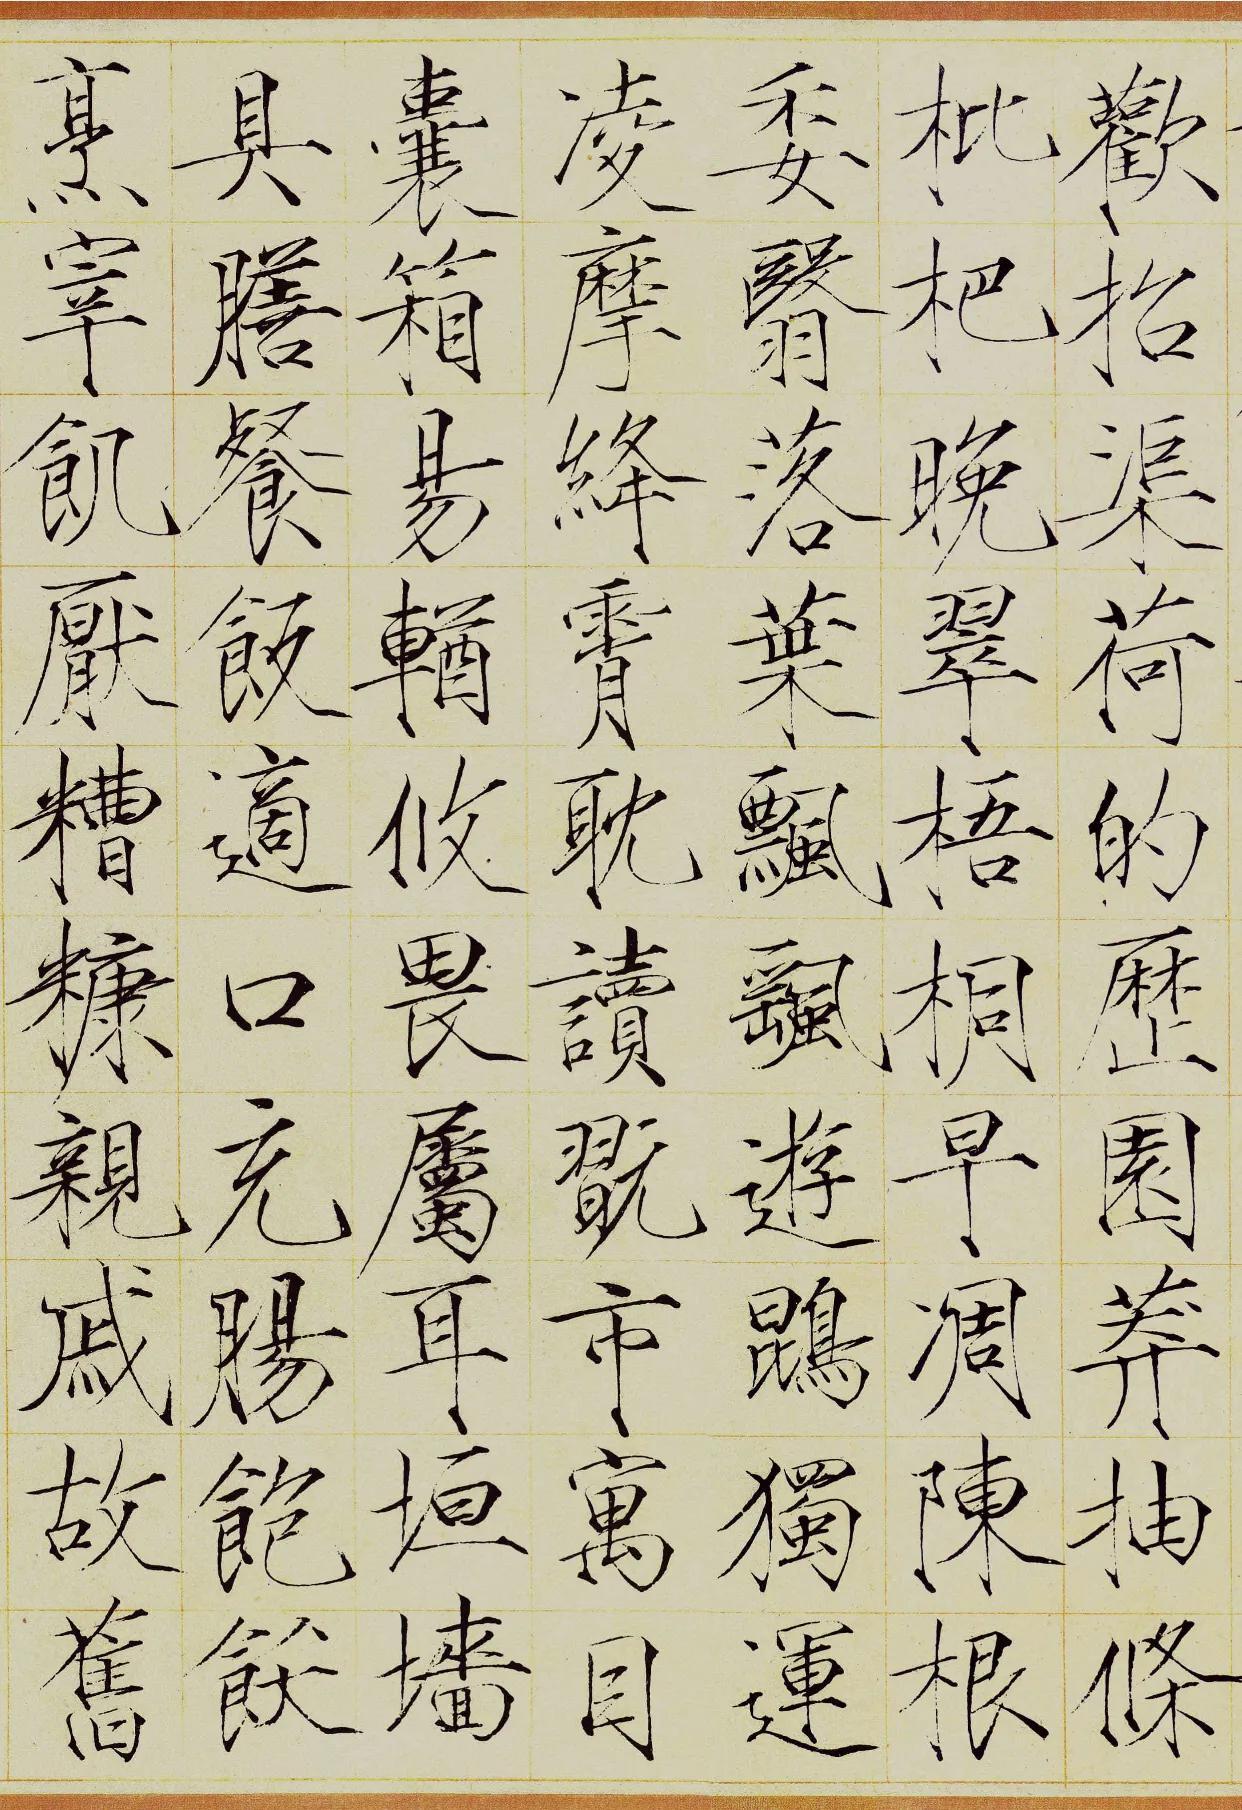 歡招渠荷的歷園莽抽條
枇杷晚翠梧桐早凋陳根
委翳落葉飄颻遊鵾獨運
凌摩絳霄耽讀翫市寓目
囊箱易輶攸畏屬耳垣墻
具膳餐飯適口充腸飽飫
烹宰飢厭糟糠親戚故舊